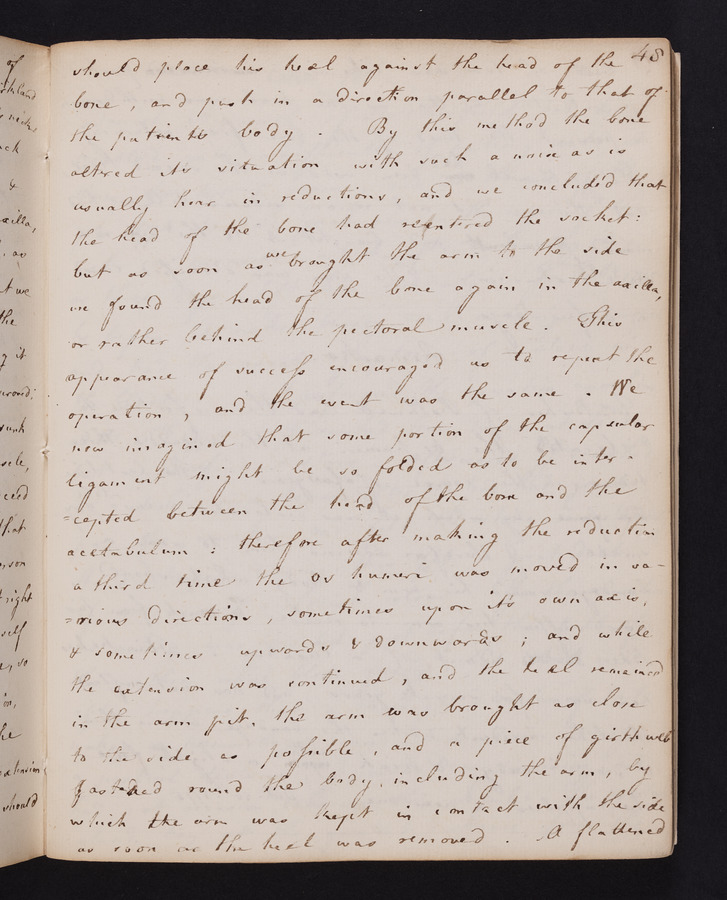 48
should place his heel against the head of the
bone, and push in a direction parallel to that of
the patients body. By this method the bone
altered its situation with such a noise as is
usually hear in reductions, and we concluded that
the head of the bone had reentered the socket:
but as soon as we brought the arm to the side
we found the head of the bone again in the axilla,
or rather behind the pectoral muscle. This
appearance of success encouraged us to repeat the
operation, and the event was the same. We
now imagined that some portion of the capsular
ligament might be so folded as to be inter-
=cepted between the head of the bone and the
acetabulum: therefore after making the reduction
a third time the os humeri was moved in va-
=rious directions, sometimes upon it's own axis,
& sometimes upwards & downwards; and while
the extension was continued, and the heel remained
in the arm pit, the arm was brought as close
to the side as possible, and a piece of girth web
fastened round the body, including the arm, by
which the arm was kept in contact with the side
as soon as the heel was removed. A flattened